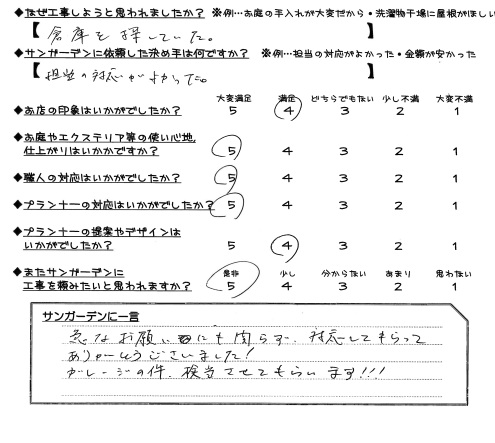 ◆なぜ工事しようと思われましたか? ※例…お庭の手入れが大変だから・洗濯物干場に屋根がほしい
【 倉庫を探していた。 】
◆サンガーデンに依頼した決め手は何ですか? ※例…担当の対応がよかった・金額が安かった
【 担当の対応がよかった。 】
大変満足 満足 どちらでもない 少し不満 大変不満
◆お店の印象はいかがでしたか? 5 4 3 2 1
◆お庭やエクステリア等の使い心地、
仕上がりはいかかですか? 5 4 3 2 1
◆職人の対応はいかがでしたか? 5 4 3 2 1
◆プランナーの対応はいかがでしたか? 5 4 3 2 1
◆プランナーの提案やデザインは
いかがでしたか? 5 4 3 2 1
是非 少し 分からない あまり 思わない
◆またサンガーデンに
工事を頼みたいと思われますか? 5 4 3 2 1
サンガーデンに一言
急なお願いにも関らず、対応してもらって
ありがとうございました!
ガレージの件、検当させてもらいます!!!